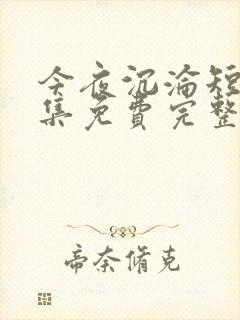 今夜沉沦短
集免费完整
帝奈脩克